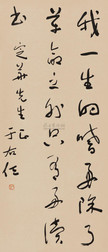 我一生的嗜好除了
革命之外只有讀
書
定華先生正
于右任